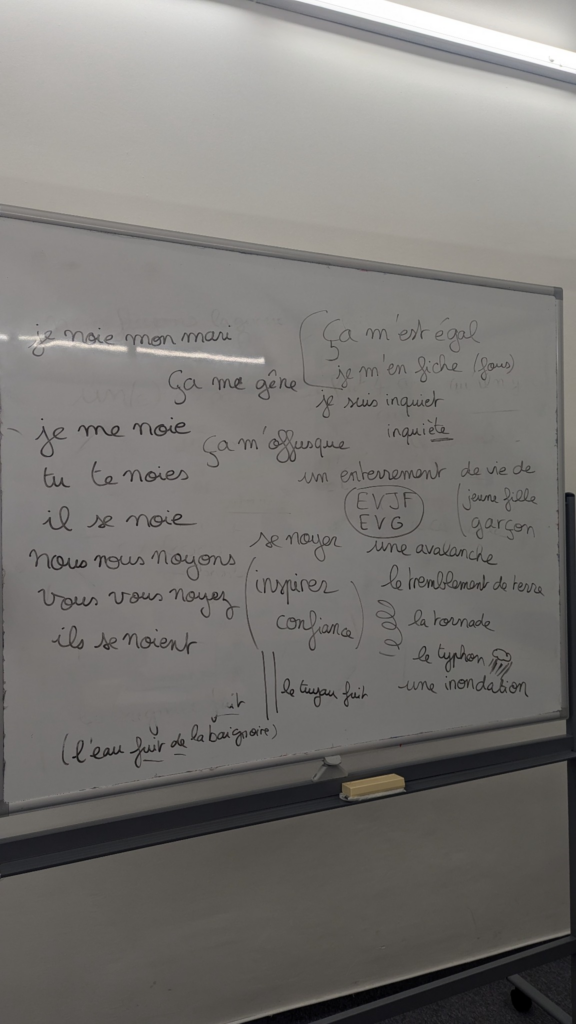 je noie mon mari
ça m'est égal
je m'en fiche (fous)
ça me gêne
je suis inquiet
inquiète
je me noie
ça m'offusque
tu te noies
un enterrement de vie de
jeune fille
garçon
EVJF
EVG
il se noie
se noyer
une avalanche
nous nous noyons
le tremblement de terre
inspirer
confiance
vous vous noyez
la tornade
ils se noient
le typhon
une inondation
le tuyau fuit
it
(l'eau fuit de la baignoire)